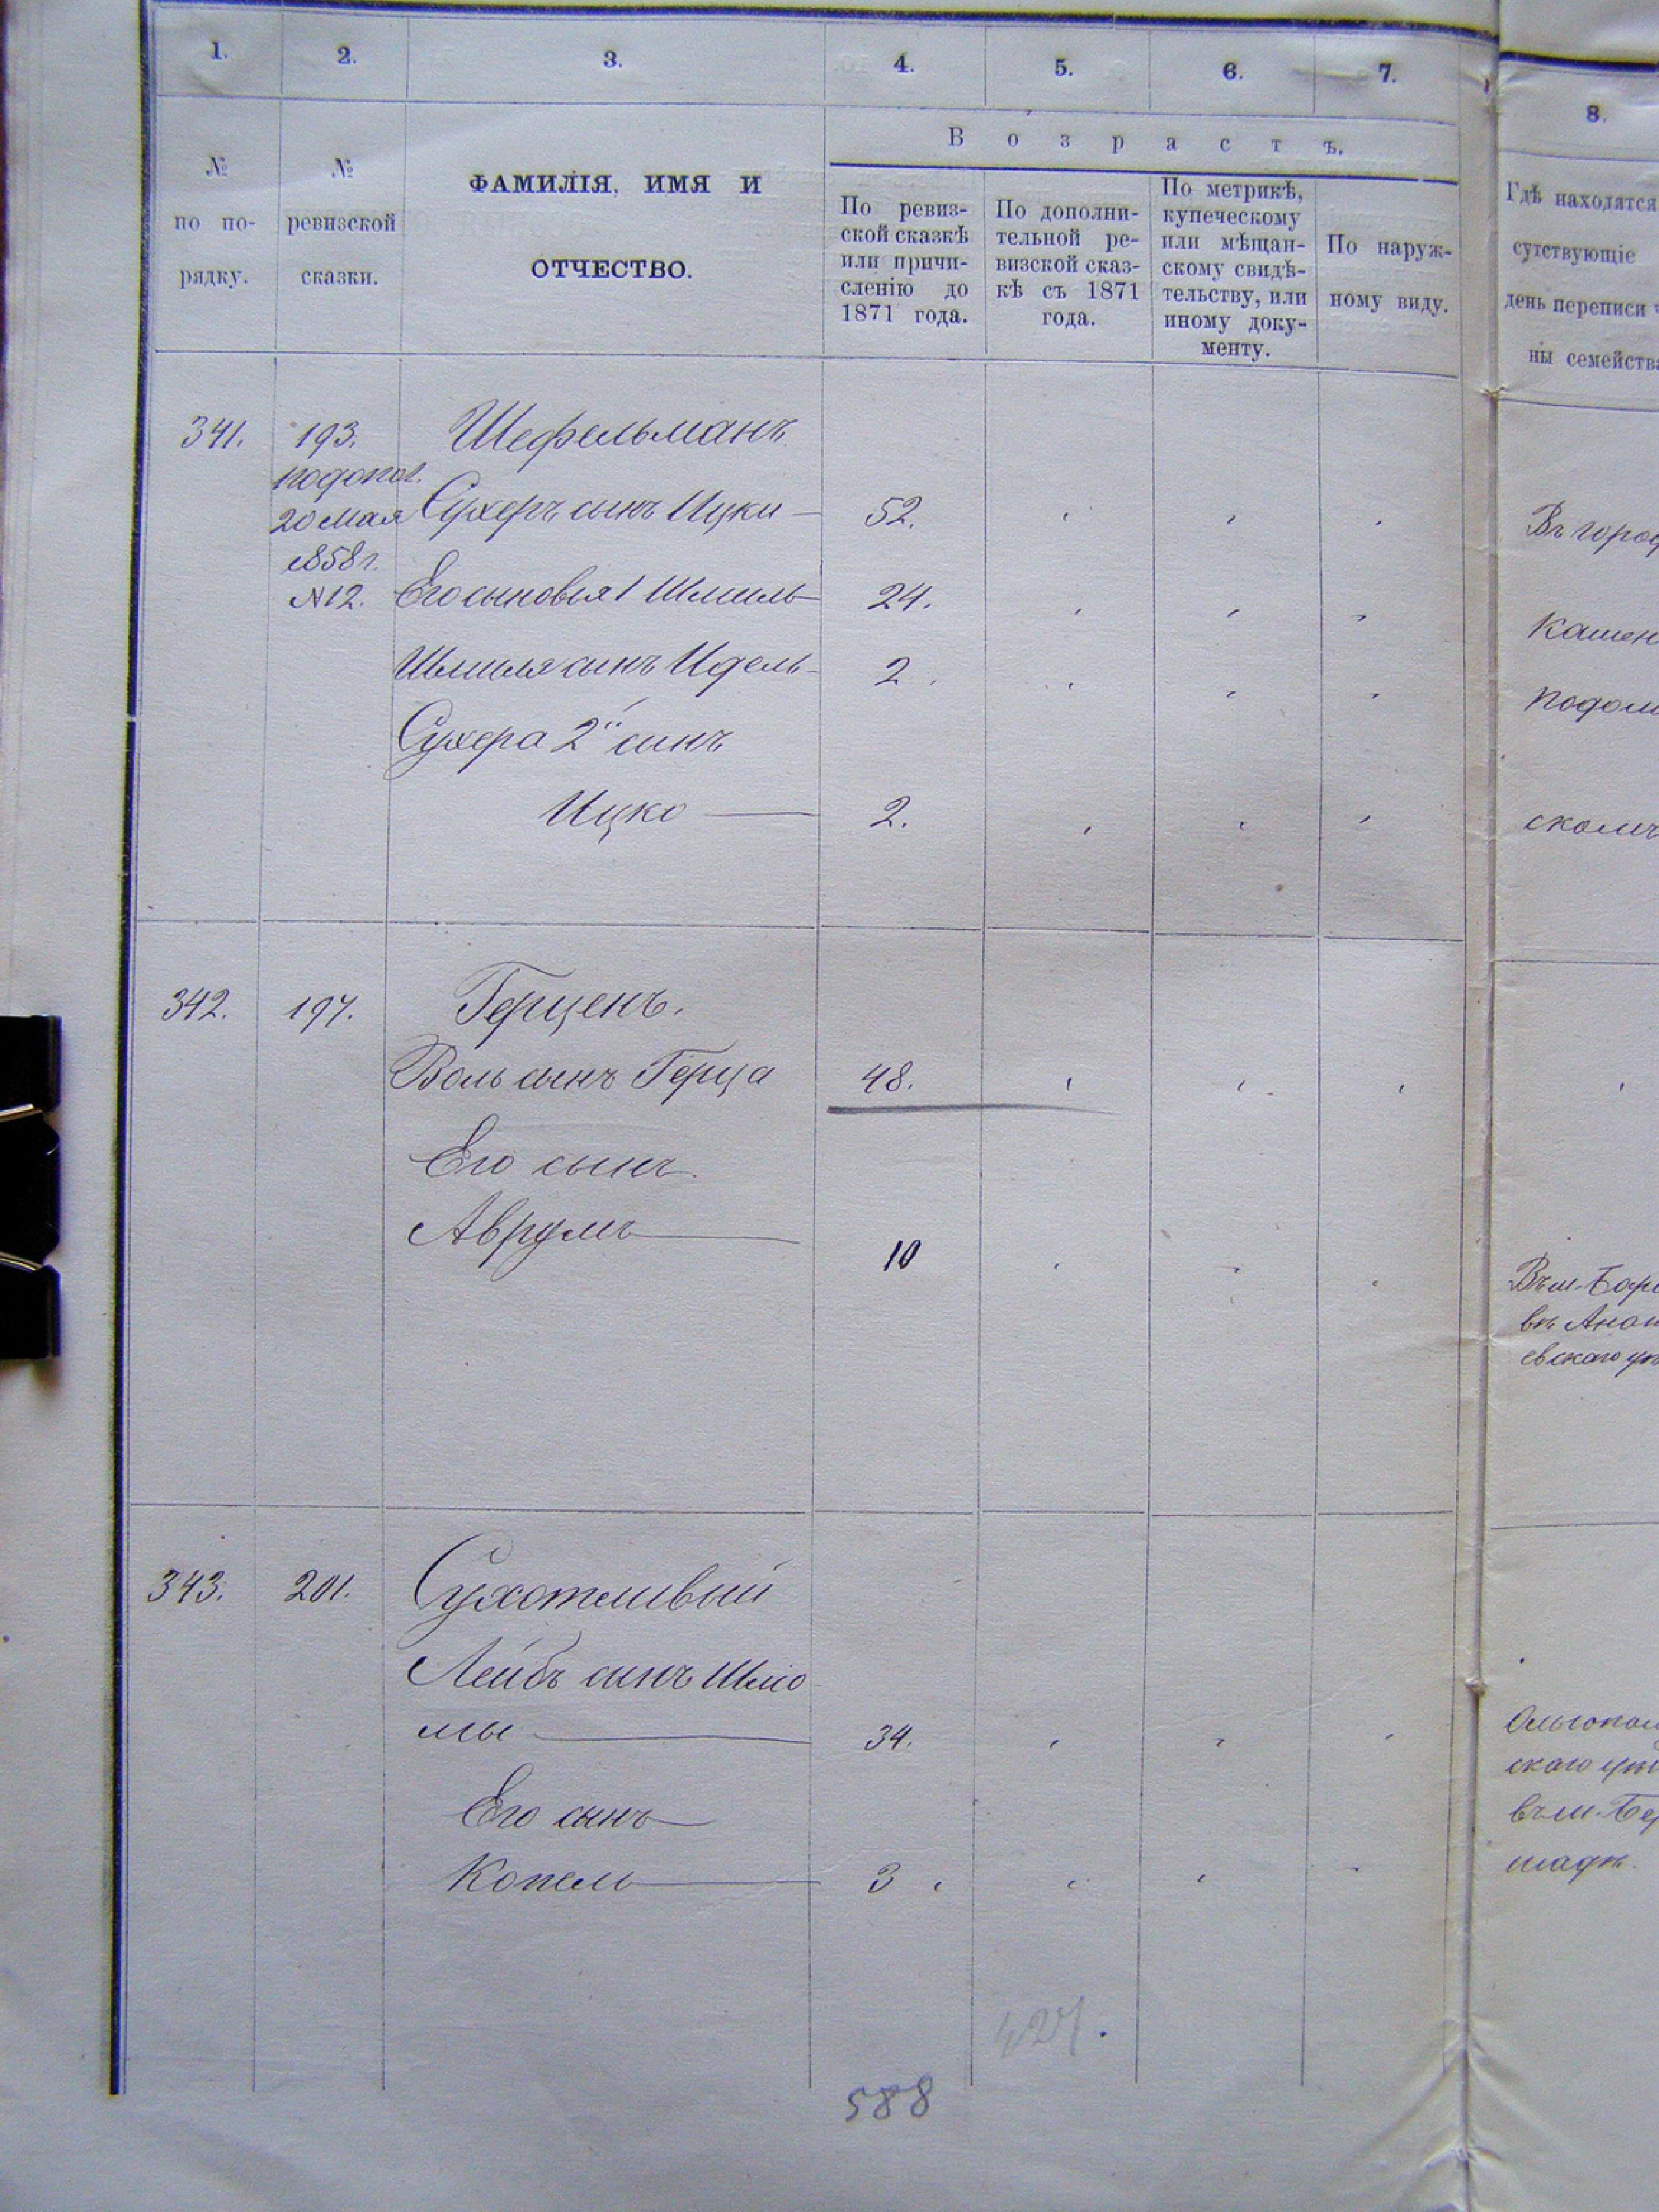 1. 2. 3. 4. 5. 6. 7. 8.
№ по по-рядку.
№ ревизской сказки.
ФАМИЛІЯ, ИМЯ И
ОТЧЕСТВО.
Возрастъ.
По ревиз-
ской сказкѣ
или причи-
сленію до
1871 года.
По дополни-
тельной ре-
визской сказ-
кѣ съ 1871
года.
По метрикѣ,
купеческому
или мѣщан-
скому свидѣ-
тельству, или
иному доку-
менту.
По наруж-
ному виду.
Гдѣ находятся
сутствующіе
день переписи
ны семейства
341. 193. Шефельманъ
подопол.
20 Мая Сухеръ сынъ Ицки 52. Въ город
1858 г.
N12. Его сыновья 1 Шмиль 24. Камен
Шмиля сынъ Идель 2. Подол
Сухера 2й сынъ
Ицко 2. скомъ
342. 197. Герценъ.
Воль сынъ Герца 48.
Его сынъ
Аврумъ 10
Въ м.
въ Анан
евскаго
343. 201. Сухотливый
Лейбъ сынъ Шлио
мы 34. Ольгопол
Его сынъ скаго
въ м. Бер
Копель 3 шадѣ.
588